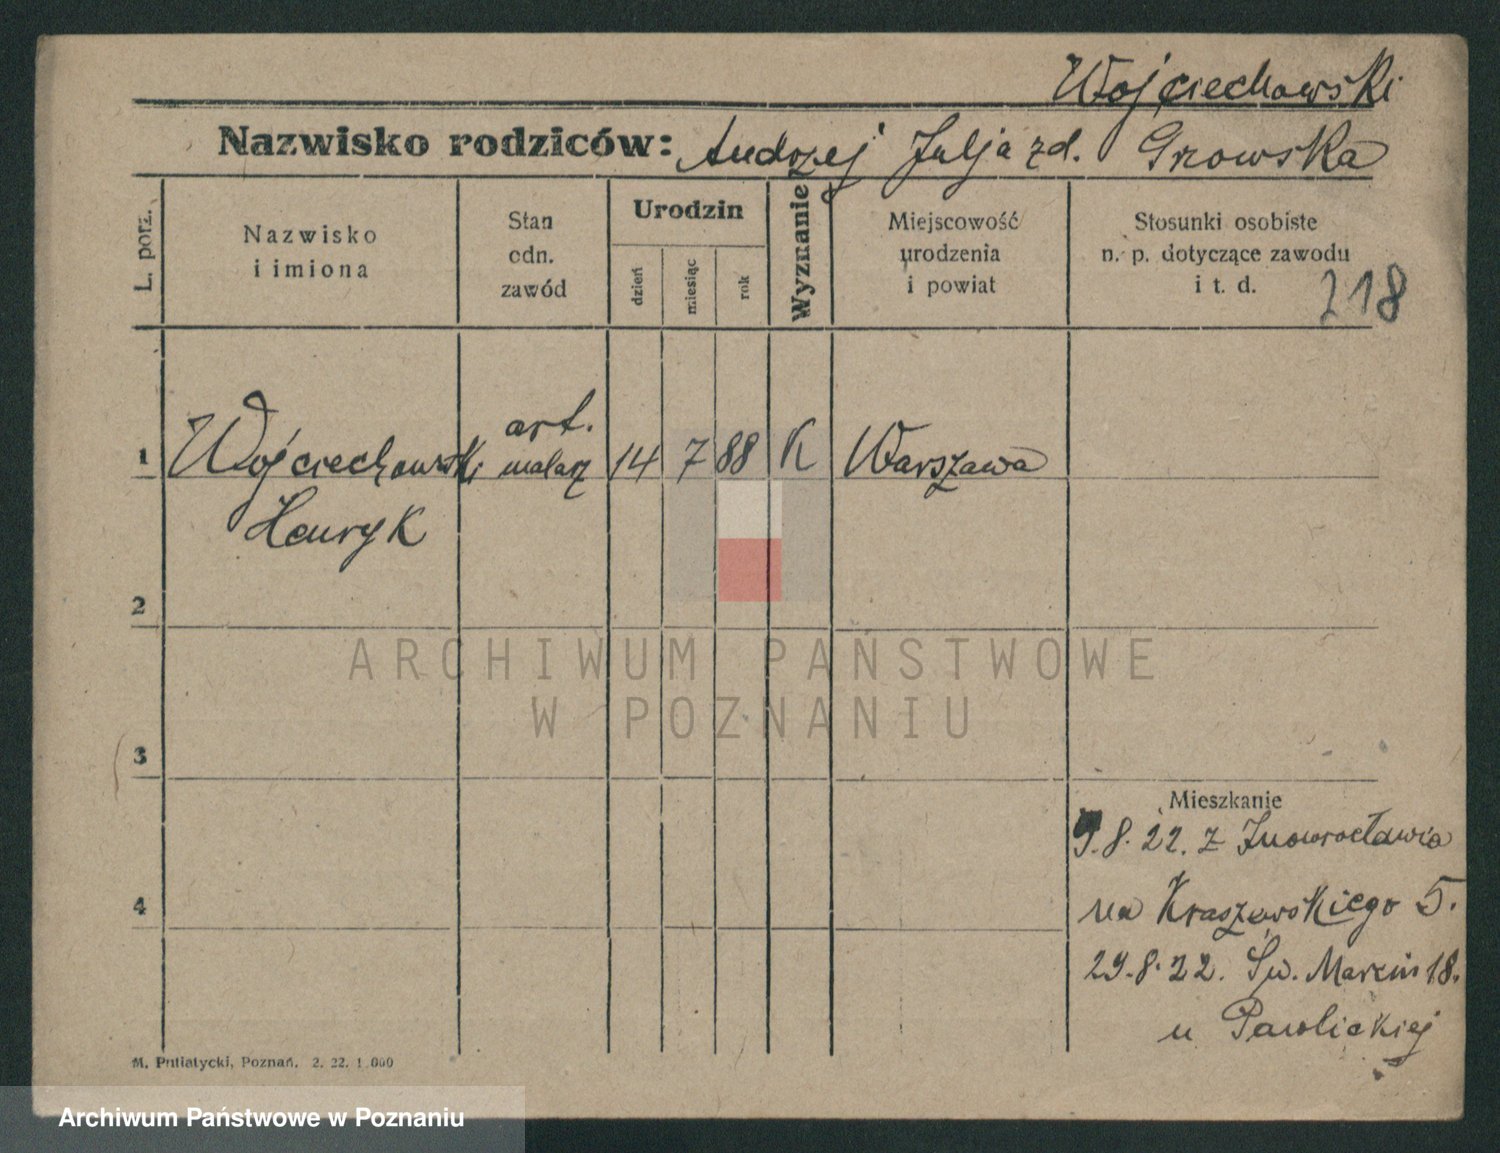 Wojciechowski
Nazwisko rodziców: Andrzej Julja zd. Grzowska
L. porz.
Nazwisko
i imiona
Stan
odn.
zawód
Urodzin
dzień
miesiąc
rok
Wyznanie
Miejscowość
urodzenia
i powiat
Stosunki osobiste
n. p. dotyczące zawodu
i t. d.
218
1 Wojciechowski art. malarz 14 7 88 K Warszawa
Henryk
2
ARCHIWUM PAŃSTWOWE
W POZNANIU
3
Mieszkanie
9.8.22. z Inowrocławia
4
na Kraszewskiego 5.
29.8.22. Św. Marcin 18.
u Pawlickiej
M. Putiatycki, Poznań. 2. 22. 1.000
Archiwum Państwowe w Poznaniu